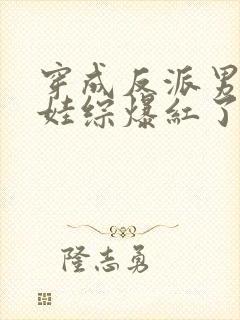 穿成反派男
娃综爆红了
隆志勇